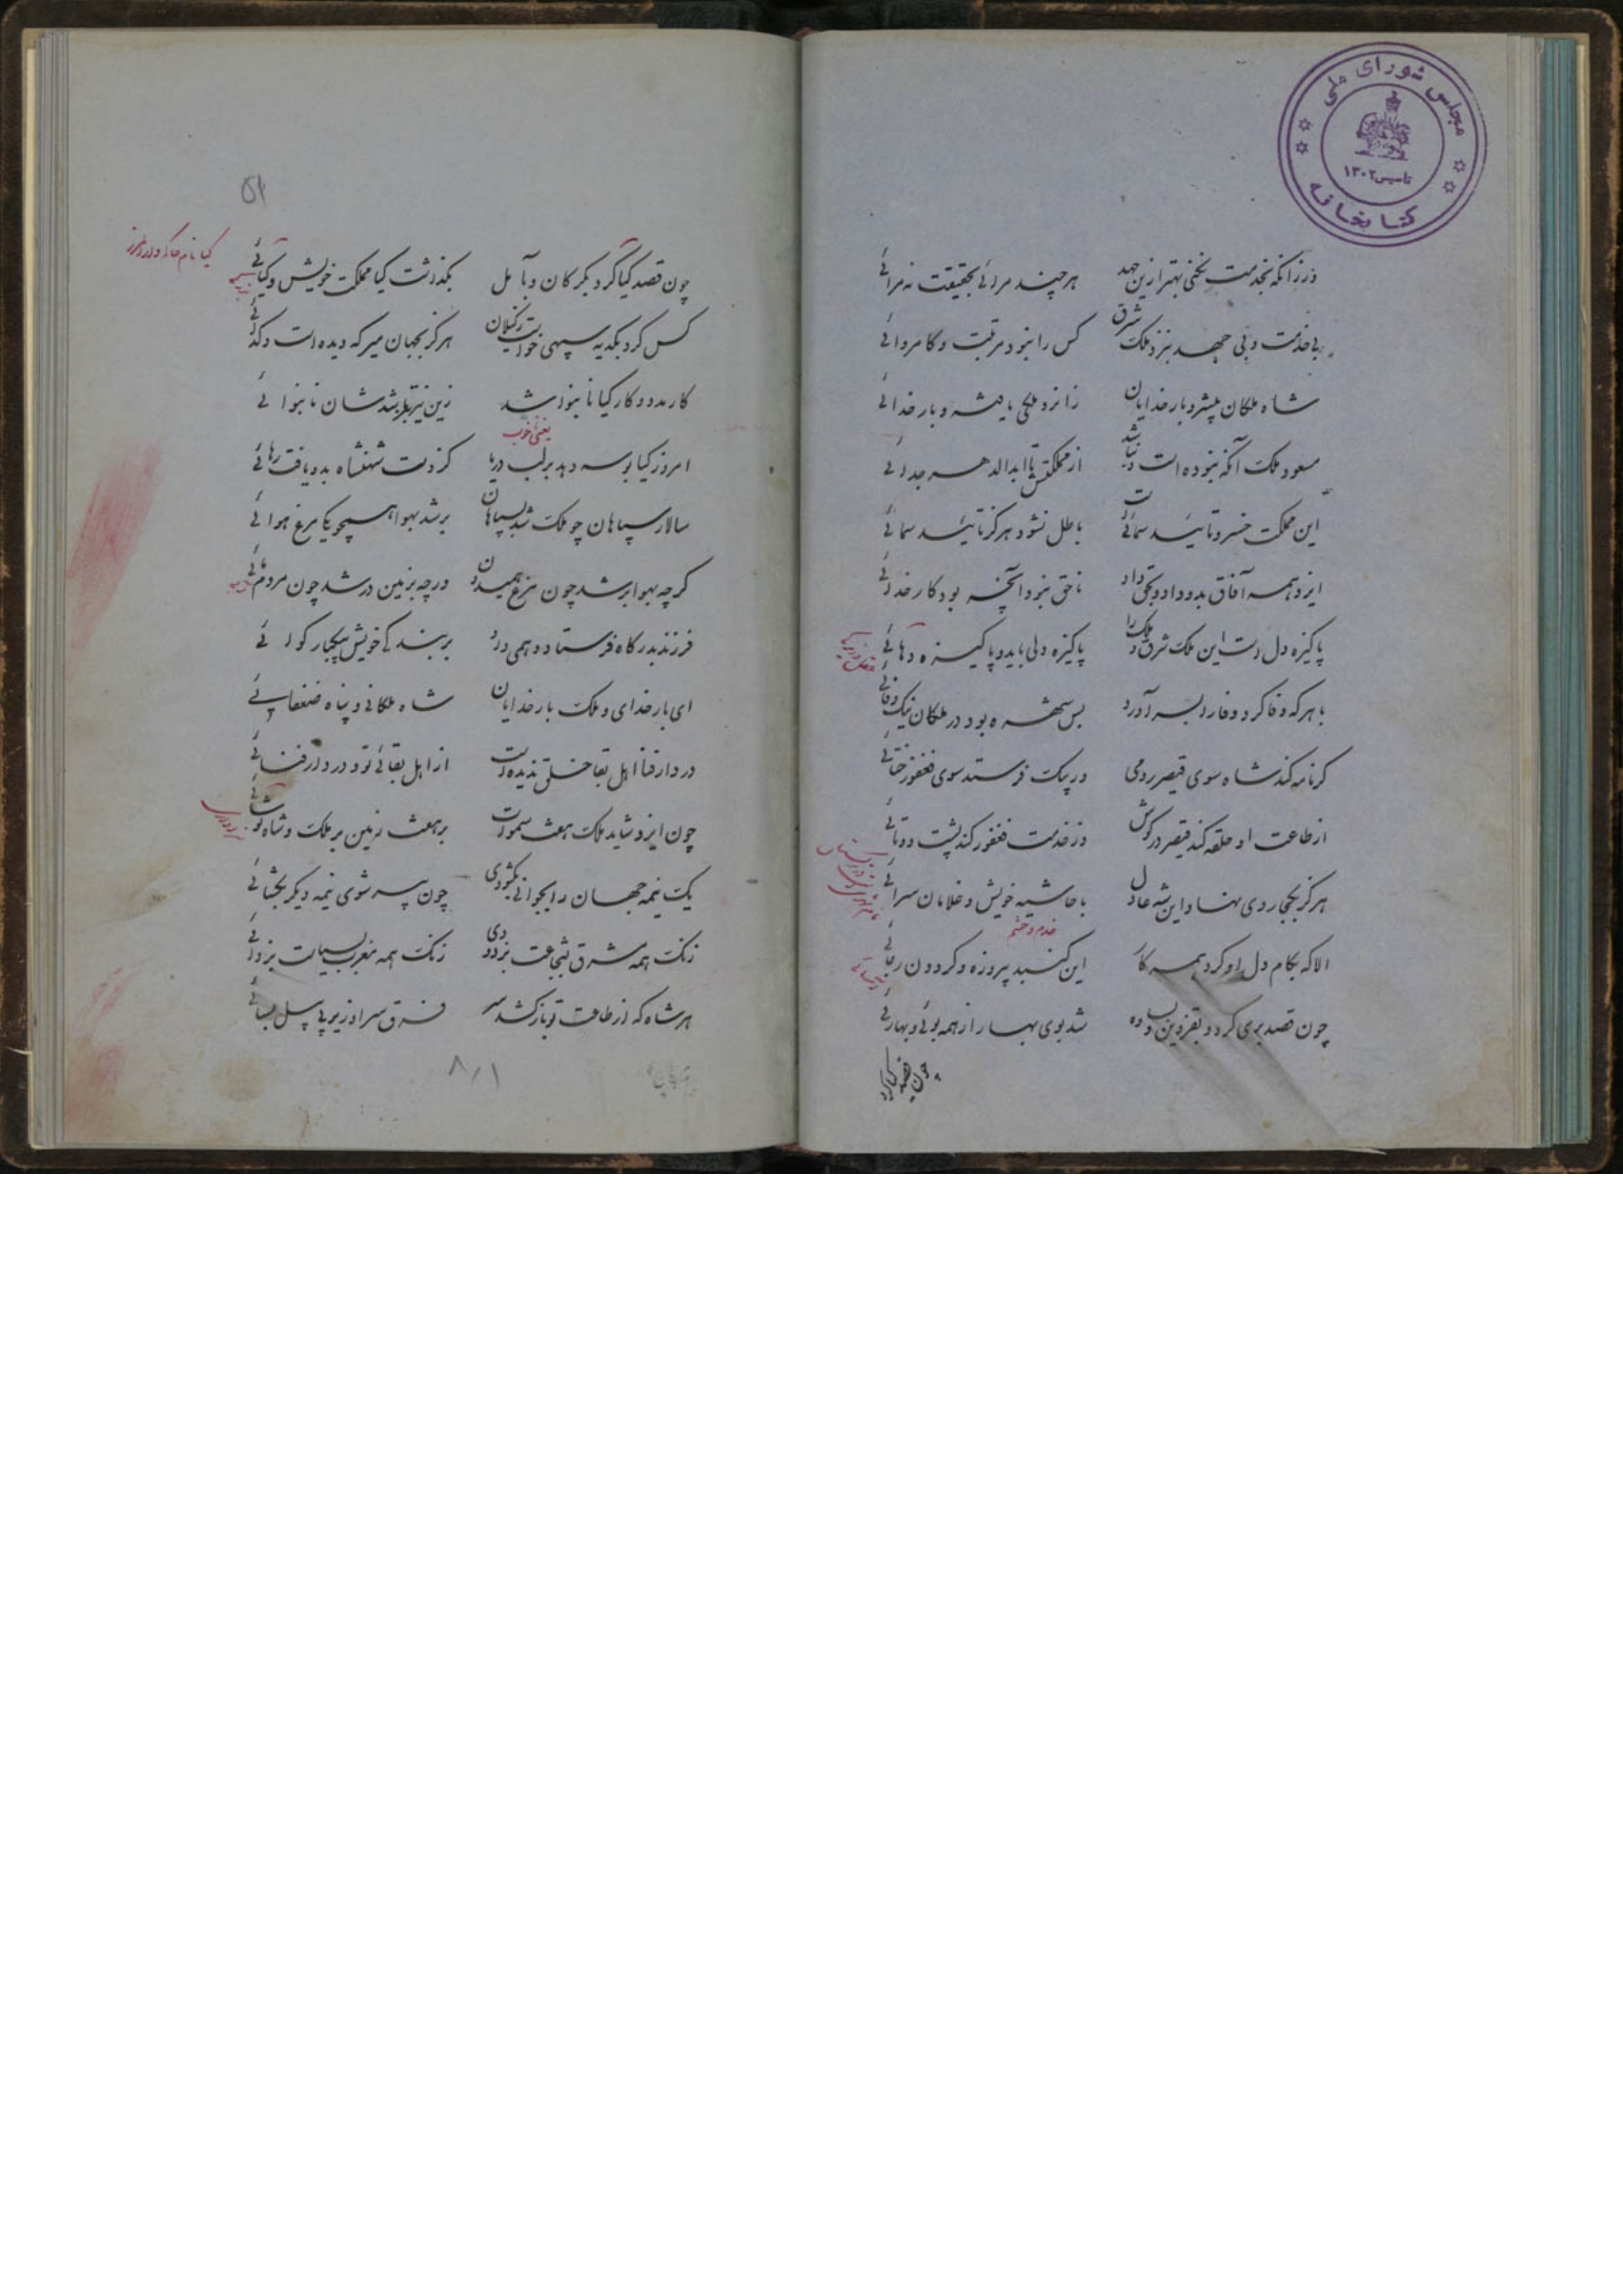 مجلس شورای ملی
تاسیس ۱۳۰۲
کتابخانه
ورزانکه بخدمت نکنی بهتر ازین جهد هر چند مرائی بحقیقت نه مرائی
بی خدمت و بی جهد بنزد ملک شرق کس را نبود مرتبت و کامروائی
شاه ملکان پیشرو بار خدایان زایزد ملکی یافته و بار خدائی
مسعود ملک آنکه نبوده است و نباشد از مملکتش تا ابدالدهر جدائی
این مملکت خسرو تایید سمائیست باطل نشود هرگز تایید سمائی
ایزد همه آفاق بدو داد و بحق داد ناحق نبود آنچه بود کار خدائی
پاکیزه دل است این ملک شرق و ملک را پاکیزه دلی باید و پاکیزه دهائی
با هر که وفا کرد وفا را بسر آورد بس شهره بود در ملکان نیک وفائی
گر نامه کند شاه سوی قیصر رومی ور پیک فرستد سوی فغفور ختائی
از طاعت او حلقه کند قیصر در گوش وز خدمت فغفور کند پشت دوتائی
هرگز بکجا روی نهاد این شه عادل با حاشیه خویش و غلامان سرائی
خدم و حشم
الا که بکام دل او کرد همه کار این گنبد پیروزه و گردون رحائی
چون قصد بری کرد و بقزوین و بساوه شد بوی بها راز همه بوئی و بهائی
چون قصد کیا کرد
۵۱
چون قصد کیا کرد بگرگان و بآمل بگذاشت کیا مملکت خویش و کیائی
کیا نام
کس کرد بکدیه سپهی خواست ز گیلان هرگز بجهان میر که دیده است و گدائی
کار مدد و کار کیا نابنوا شد زین نیز بتر باشدشان نابنوائی
یعنی خوب
امروز کیا بوسه دهد بر لب دریا کز دست شهنشاه بدو یافت رهائی
سالار سپاهان چو ملک شد بسپاهان بر شد بهوا همچو یکی مرغ هوائی
گرچه بهوا بر شد چون مرغ همیدون ورچه بزمین در شد چون مردم مائی
فرزند بدرگاه فرستاد و همی داد بر بندگی خویش بیکبار گوائی
ای بار خدای و ملک بار خدایان شاه ملکانی و پناه ضعفایی
در دار فنا اهل بقا خلق ندیده است از اهل بقائی تو و در دار فنائی
چون ایزد شاید ملک هفت سموات بر هفت زمین بر ملک و شاه تو شائی
یک نیمه جهان را بجوانی بگشودی چون پیر شوی نیمه دیگر بگشائی
زنگ همه مشرق بشجاعت بزدودی زنگ همه مغرب بسیاست بزدائی
هر شاه که از طاعت تو باز کشد سر فرق سر او زیر پی پیل بسائی
۸۱